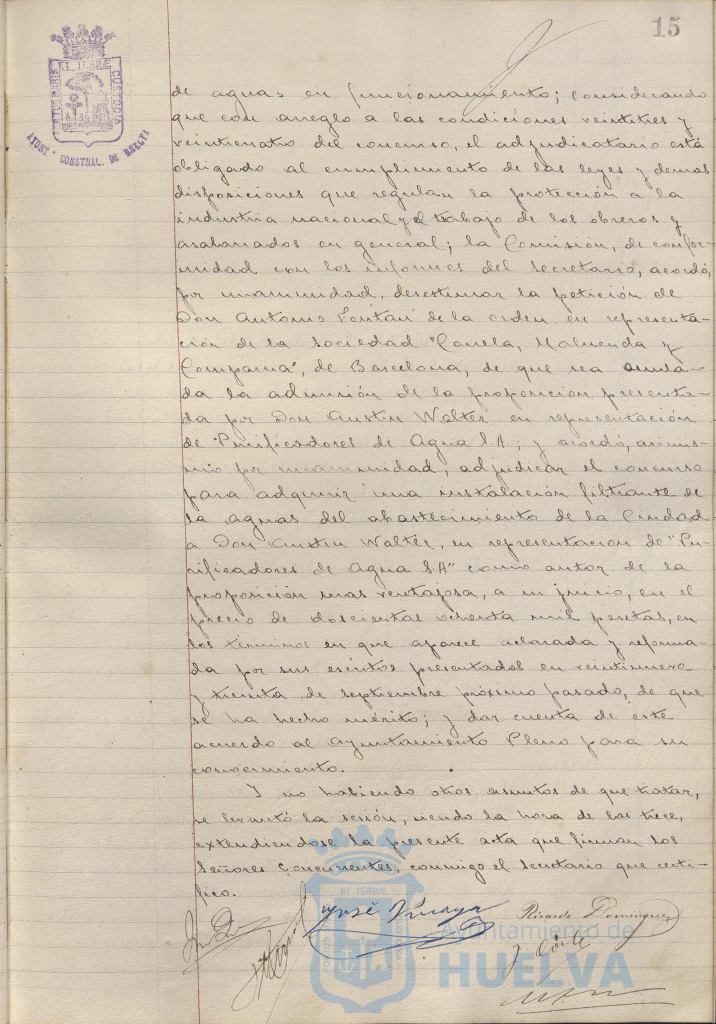 15
PORTUS MARIS ET TERRÆ CUSTODIA
AYUNT° CONSTNAL. DE HUELVA
de aguas en funcionamiento; considerando
que con arreglo a las condiciones veintitres y
veinticuatro del concurso, el adjudicatario está
obligado al cumplimiento de las leyes y demas
disposiciones que regulan la protección a la
industria nacional y el trabajo de los obreros y
asalariados en general; la Comisión, de confor-
midad con los informes del Secretario, acordó,
por unanimidad, desestimar la petición de
Don Antonio Fontán de la orden en representa-
ción de la Sociedad "Canela, Maluenda y
Compania", de Barcelona, de que sea anula-
da la admisión de la proposición presenta-
da por Don Austin Walter en representación
de "Purificadores de Agua S.A; y acordó, asimis-
mo por unanimidad, adjudicar el concurso
para adquirir una instalación filtrante de
la aguas del abastecimiento de la Ciudad
a Don Austin Walter, en representacion de "Pu-
rificadores de Agua S.A" como autor de la
proposición mas ventajosa, a su juicio, en el
precio de doscientas ochenta mil pesetas, en
los términos en que aparece aclarada y reforma-
da por sus escritos presentados en veintinueve
y treinta de septiembre próximo pasado, de que
se ha hecho mérito; y dar cuenta de este
acuerdo al Ayuntamiento Pleno para su
conocimiento.
Y no habiendo otros asuntos de que tratar,
se levantó la sesión, siendo la hora de las trece,
extendiendose la presente acta que firman los
Señores concurrentes, conmigo el Secretario que certi-
fico.
José Vizcaya
Ricardo Domínguez
ET TERRÆ
Ayuntamiento de
HUELVA